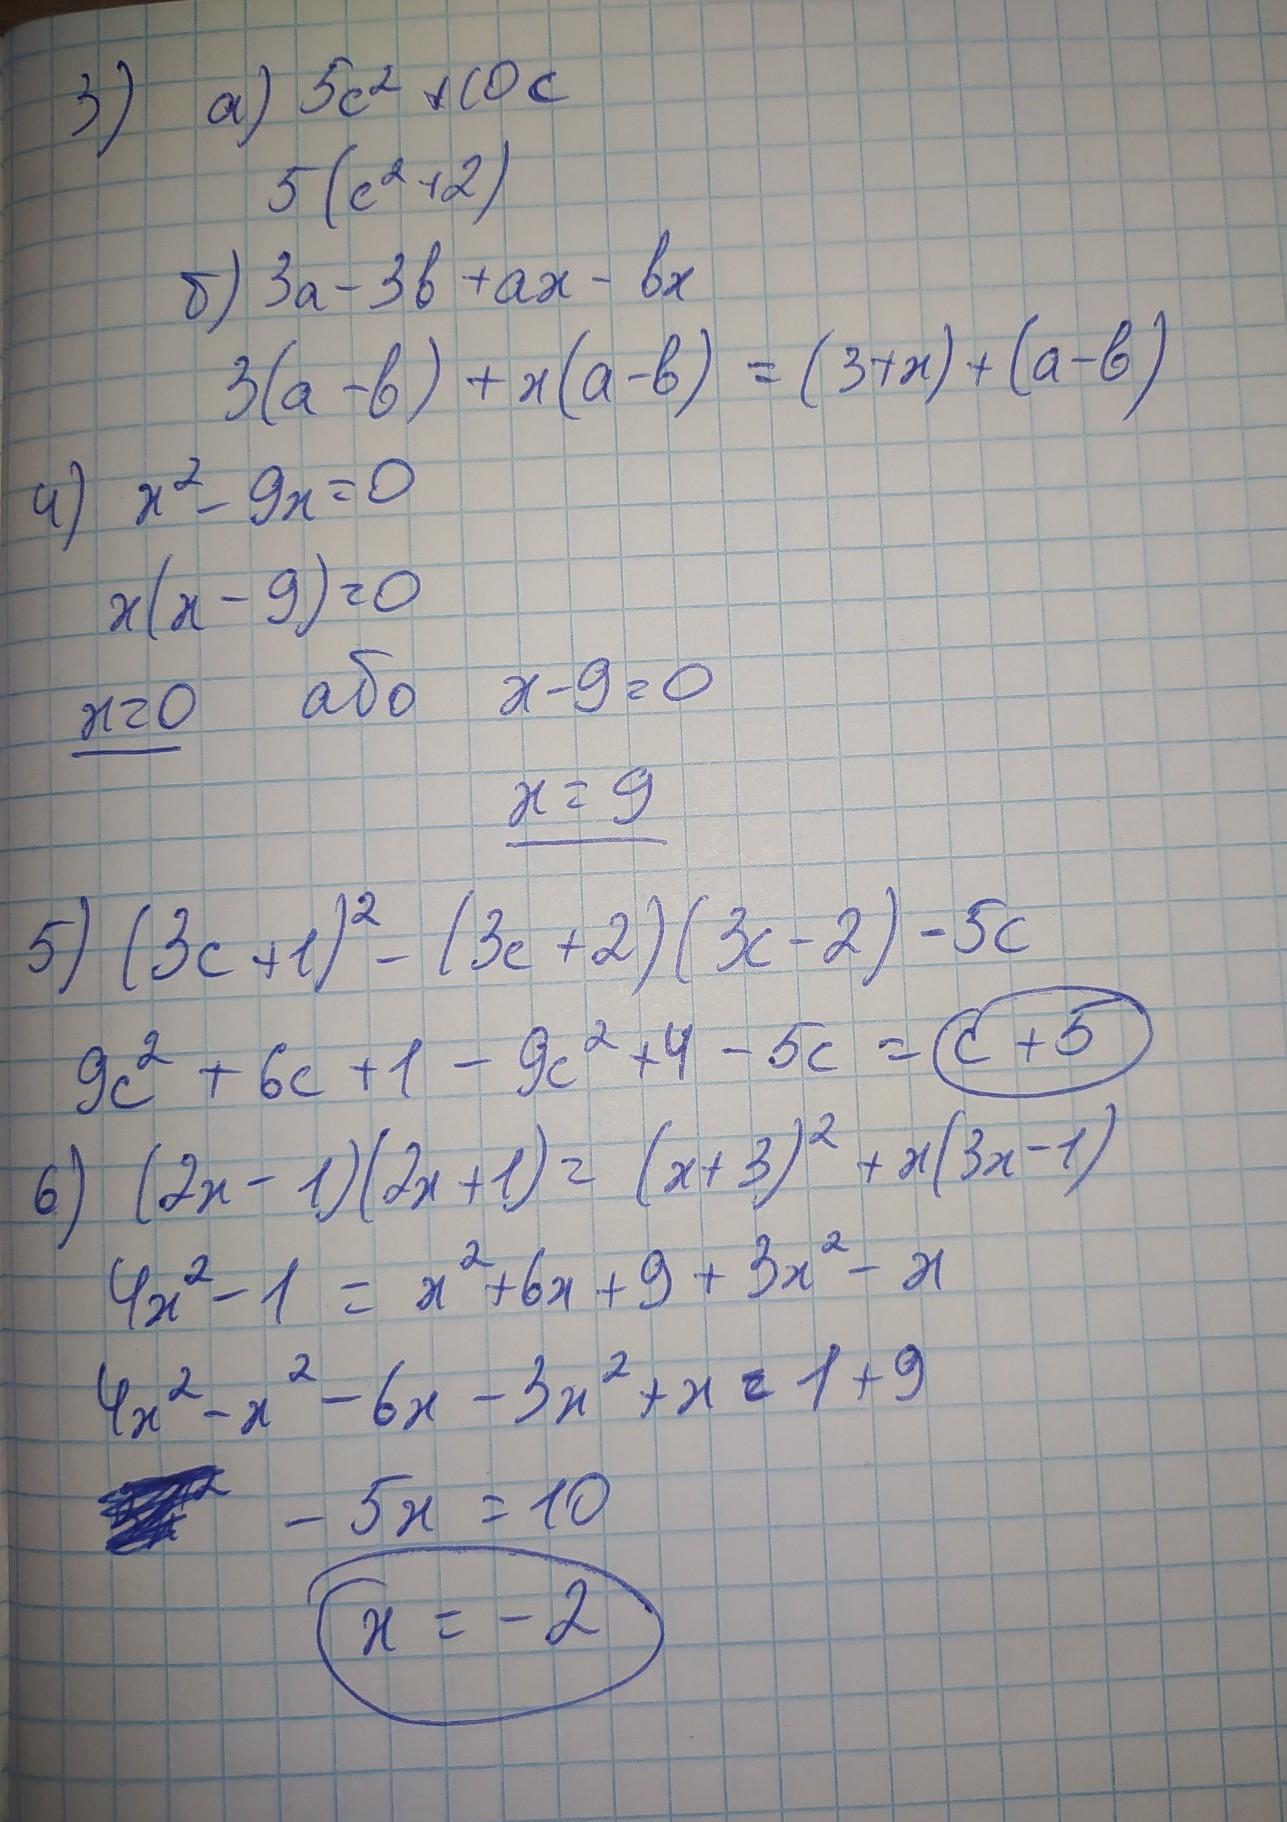 3) а) 5c² + 10c
5(c² + 2)
б) 3a - 3b + ax - bx
3(a - b) + x(a - b) = (3 + x) + (a - b)
4) x² - 9x = 0
x(x - 9) = 0
x = 0 або x - 9 = 0
x = 9
5) (3c + 1)² - (3c + 2)(3c - 2) - 5c
9c² + 6c + 1 - 9c² + 4 - 5c = c + 5
6) (2x - 1)(2x + 1) = (x + 3)² + x(3x - 1)
4x² - 1 = x² + 6x + 9 + 3x² - x
4x² - x² - 6x - 3x² + x = 1 + 9
- 5x = 10
x = - 2